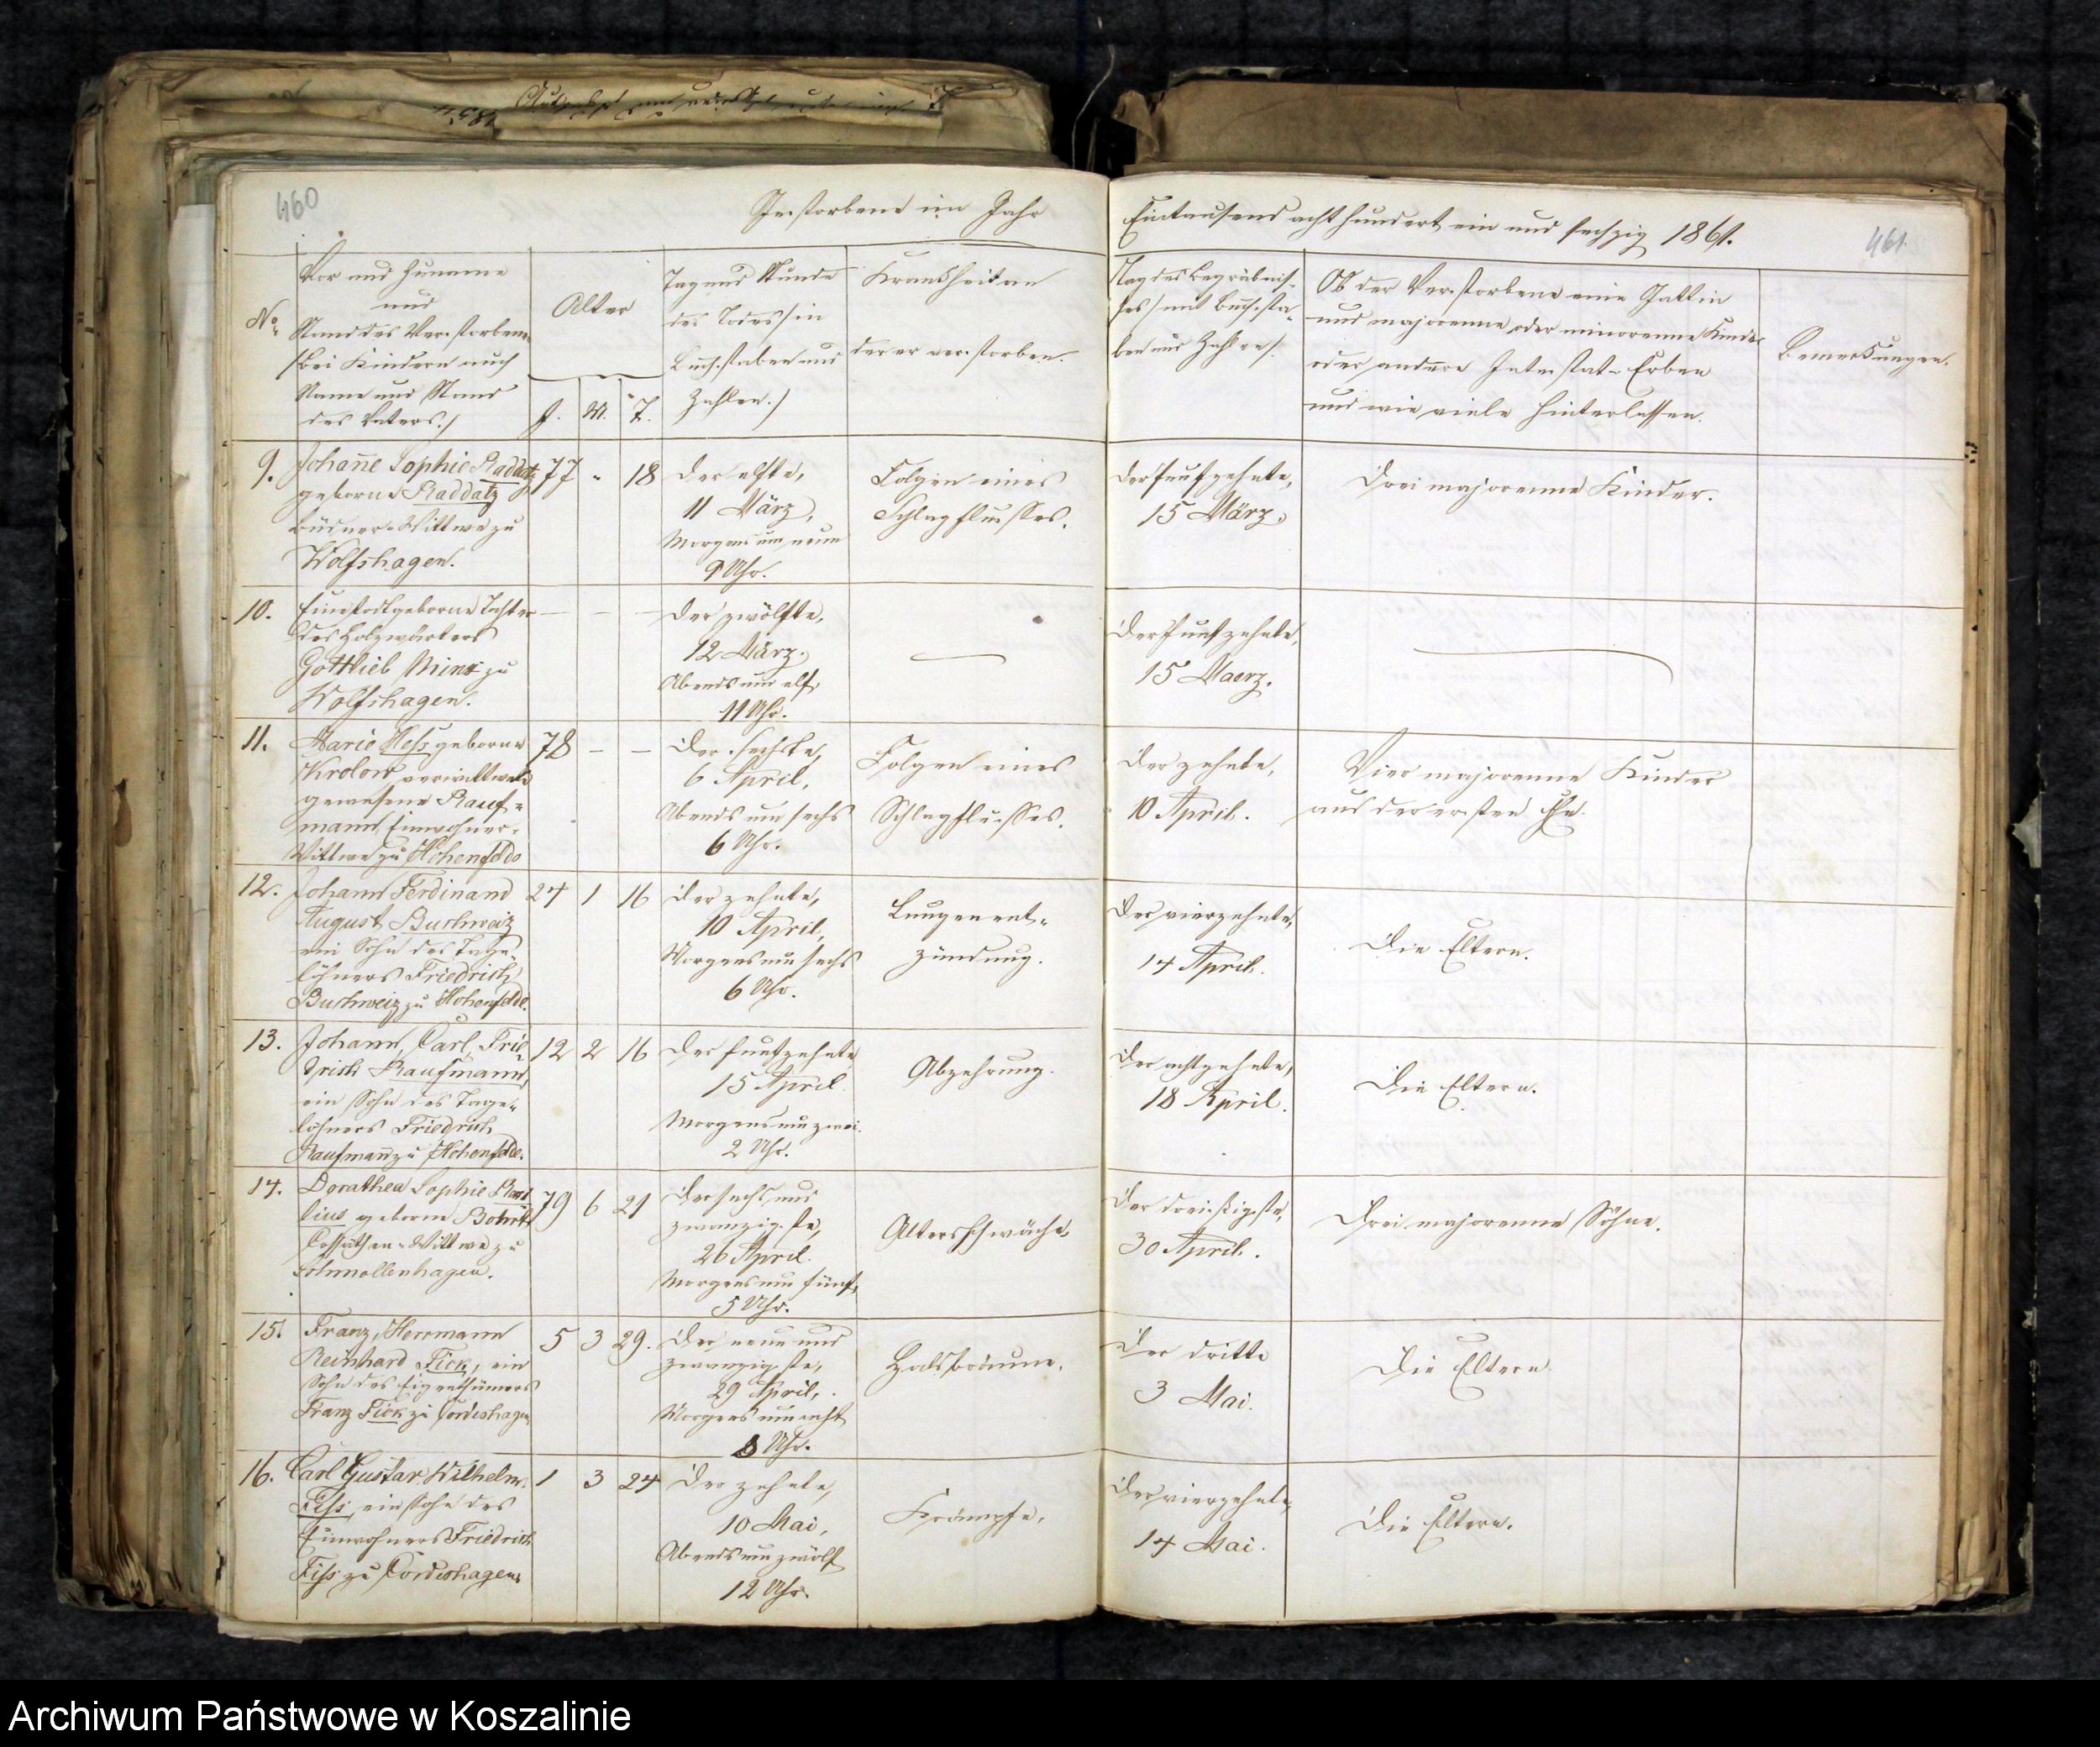 460
Gestorbene im Jahr
No
Vor und Zuname
und
Stand des Verstorbenen
/bei Kindern auch
Name und Stand
des Vaters./
Alter
J.
M.
T.
Tag und Stunde
des Todes /in
Buchstaben und
Zahlen./
Krankheit an
der er verstorben.
9.
Johanne Sophie Raddatz
geborne Raddatz
Büdner-Wittwe zu
Wolfshagen.
77
"
18
Der elfte,
11 März,
Morgens um neun
9 Uhr.
Folgen eines
Schlagflusses.
10.
Eine todtgeborne Tochter
des Holzwärters
Gottlieb Minx zu
Wolfshagen.
—
—
—
Der zwölfte,
12 März,
Abends um elf,
11 Uhr.
—
11.
Marie Hess geborne
Krolow verwittwete
gewesene Kauf-
mann, Einwohner-
Wittwe zu Hohenfelde
78
—
—
Der sechste,
6 April,
Abends um sechs
6 Uhr.
Folgen eines
Schlagflusses.
12.
Johann Ferdinand
August Buchweiz
ein Sohn des Tage-
löhners Friedrich
Buchweiz zu Hohenfelde.
24
1
16
Der zehnte,
10 April,
Morgens um sechs
6 Uhr.
Lungenent-
zündung.
13.
Johann, Carl, Frie-
drich Kaufmann,
ein Sohn des Tage-
löhners Friedrich
Kaufmann zu Hohenfelde.
12
2
16
Der funfzehnte
15 April.
Morgens um zwei.
2 Uhr.
Abzehrung.
14.
Dorathea Sophie
geborne
Cossäthen-Wittwe zu
Schmollenhagen.
79
6
21
Der sechs und
zwanzigste,
26 April.
Morgens um fünf,
5 Uhr.
Altersschwäche.
15.
Franz, Herrmann
Reinhard Fick, ein
Sohn des Eigenthümers
Franz Fick zu Cordeshagen
5
3
29.
Der neun und
zwanzigste,
29 April,
Morgens um acht
8 Uhr.
Halsbräune.
16.
Carl Gustav Wilhelm
Fiss, ein Sohn des
Einwohners Friedrich
Fiss zu Cordeshagen.
1
3
24
Der zehnte,
10 Mai,
Abends um zwölf
12 Uhr.
Krämpfe.
Eintausend acht hundert ein und sechzig 1861.
461
Tag des Begräbnis-
ses /mit Buchsta-
ben und Zahlen/.
Ob der Verstorbene eine Gattin
und majorenne oder minorenne Kinder
oder andere Intestat-Erben
und wie viele hinterlassen.
Bemerkungen.
Der funfzehnte,
15 März.
Drei majorenne Kinder.
Der funfzehnte,
15 Maerz.
—
Der zehnte,
10 April.
Vier majorenne Kinder
aus der ersten Ehe.
Der vierzehnte,
14 April.
Die Eltern.
Der achtzehnte,
18 April.
Die Eltern.
Der dreißigste,
30 April.
Drei majorenne Söhne.
Der dritte
3 Mai.
Die Eltern
Der vierzehnte,
14 Mai.
Die Eltern.
Archiwum Państwowe w Koszalinie